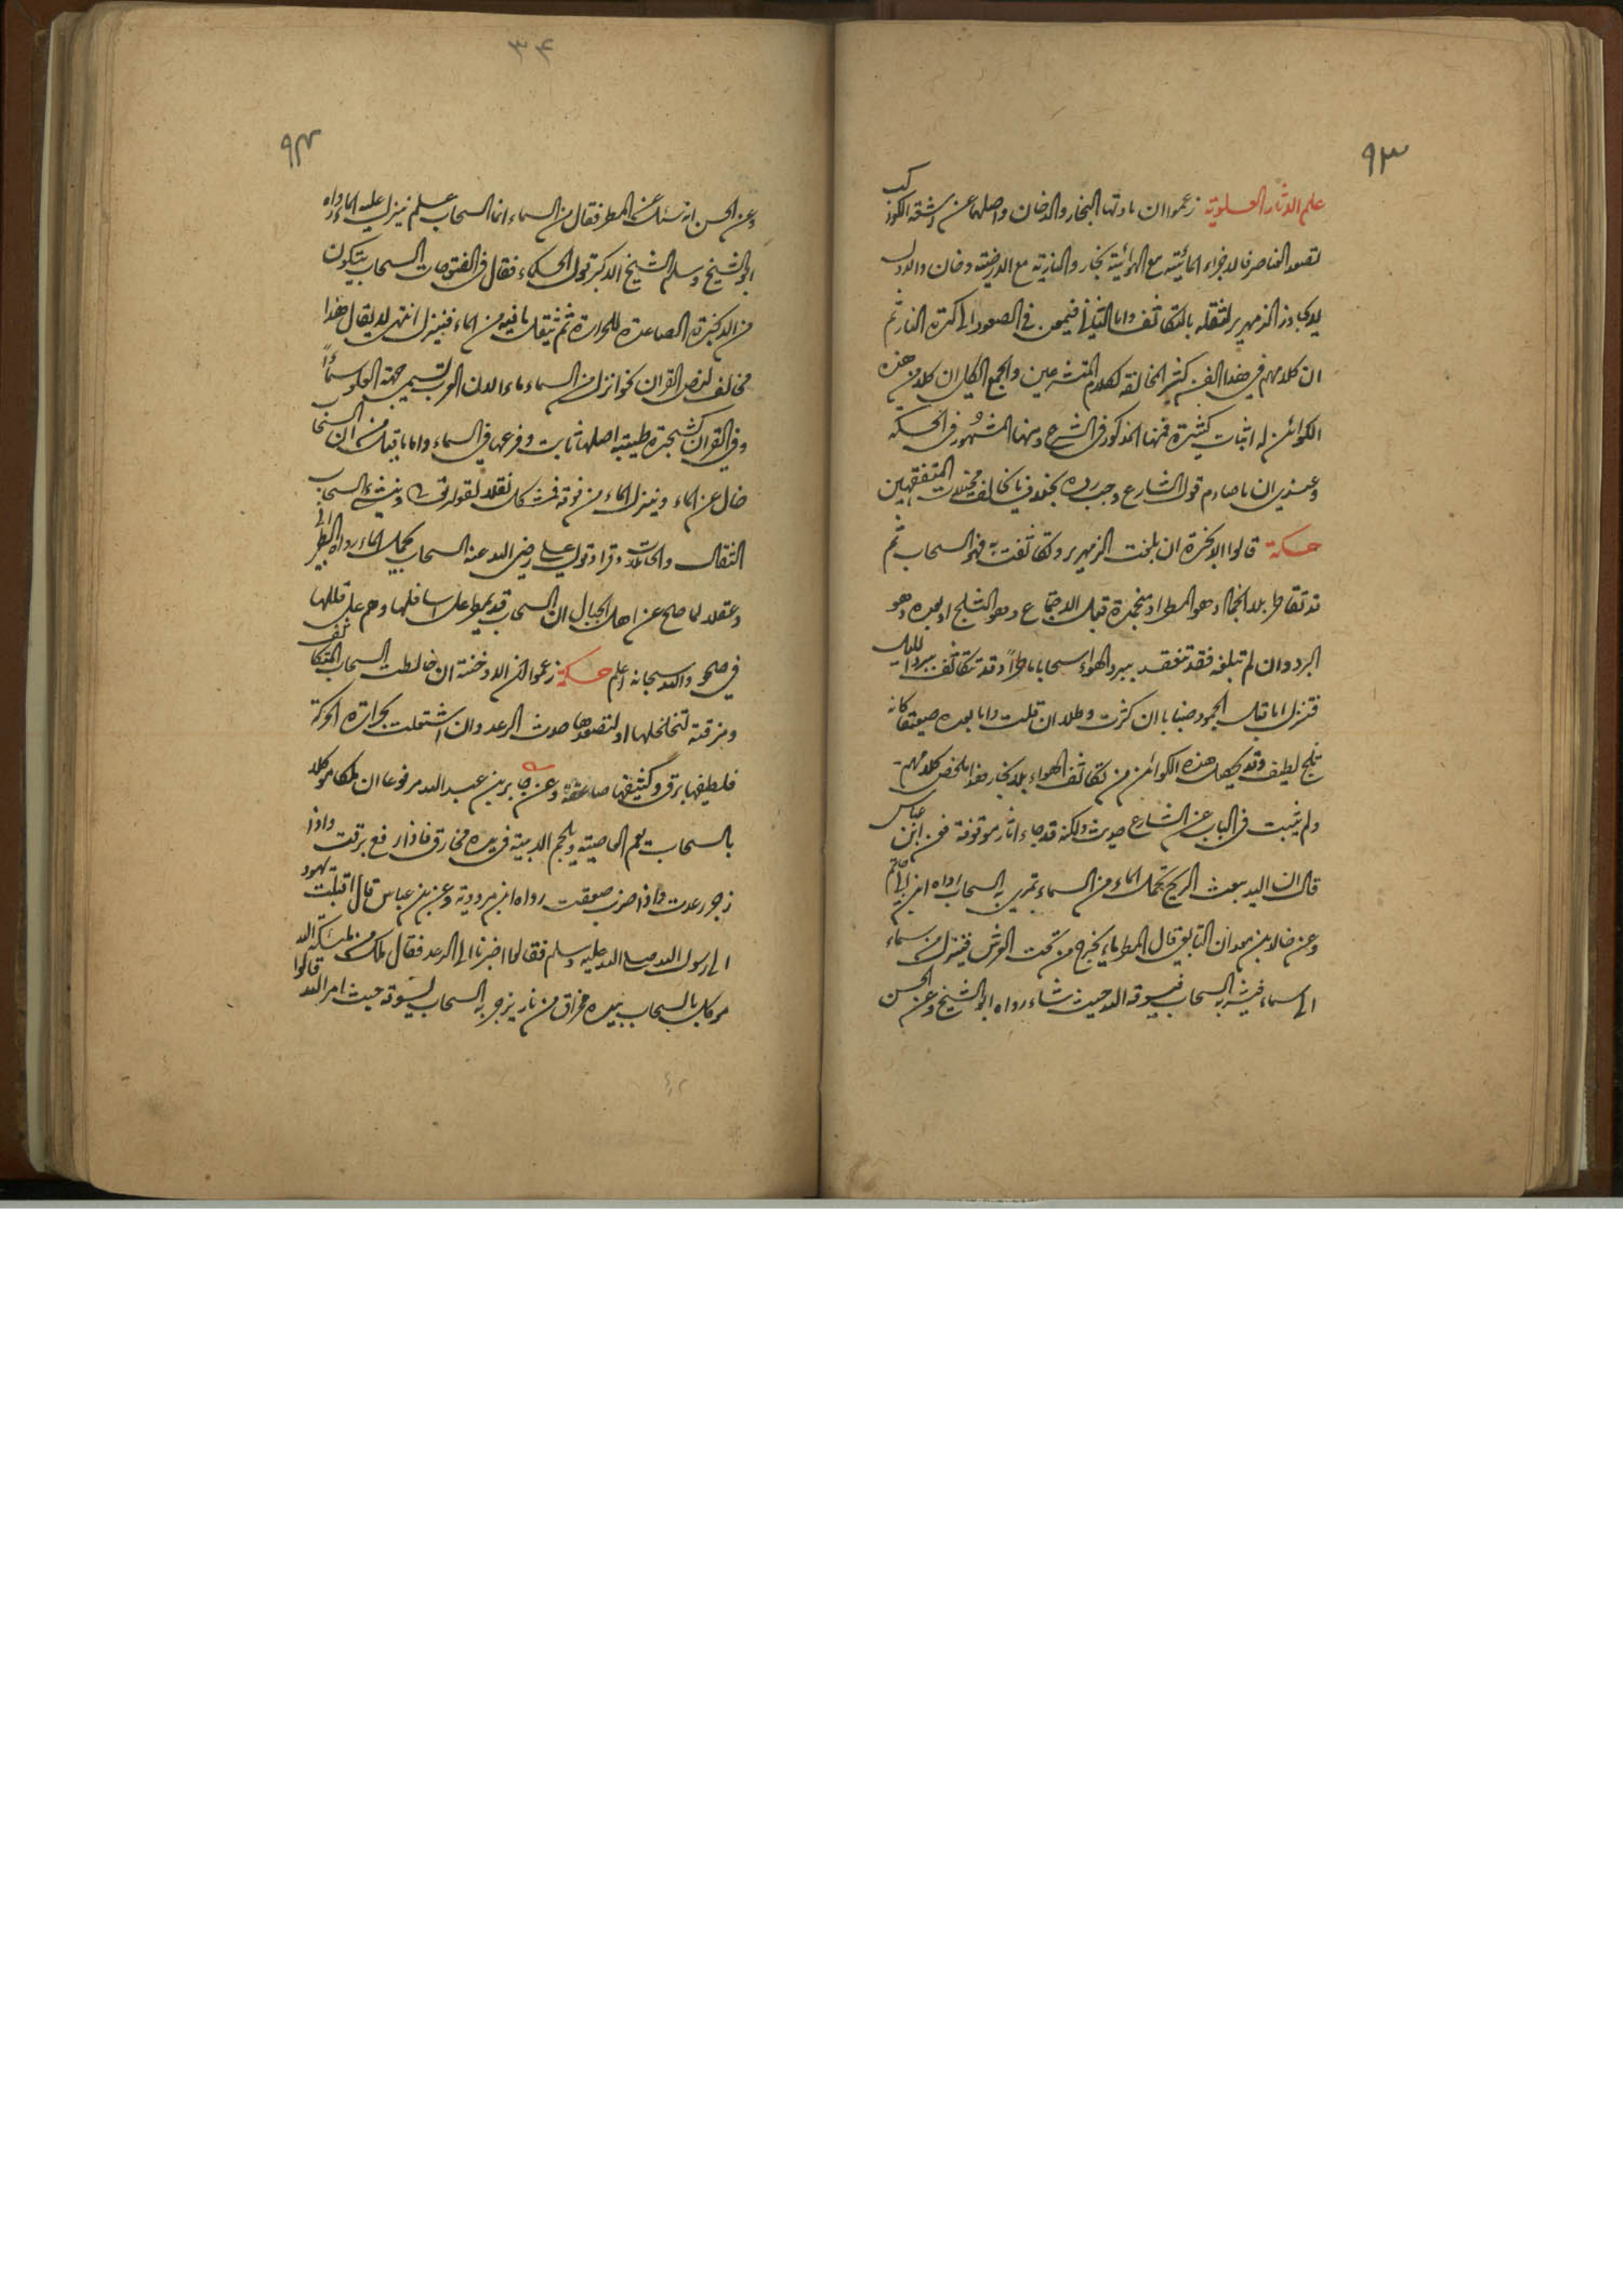 ٩٣
علم الاثار العلوية زعموا ان مادتها البخار والدخان واصلهما عن اشعة الكواكب
تصعد العناصر فالاجزاء المائية مع الهوائية بخار والنارية مع الارضية دخان والاول
لا يجاوز الزمهرير لثقله بالتكاثف واما الثاني فيمعن في الصعود الى كرة النار ثم
ان كلامهم في هذا الفن كثير المخالفة لكلام المتشرعين والجمع الكلي ان كلا من هذه
الكوائن له اثبات كثيرة فمنها المذكور في الشرع ومنها المشهور في الحكمة
وعندي ان ما صادم قول الشارع وجب رده بخلاف ما يخالف مخيلات المتفقهين
حكمة قالوا الابخرة ان بلغت الزمهرير وتكاثفت به فهو السحاب ثم
قد تقاطر بلا انجماد وهو المطر او منجمدة قبل الاجتماع وهو الثلج او بعده وهو
البرد وان لم تبلغه فقد تنعقد ببرد الهواء سحابا ماطرا وقد تتكاثف ببرد الليل
فتنزل اما قبل الجمود ضبابا ان كثرت وطلا ان قلت واما بعده صقيعا كانه
ثلج لطيف وقد يحصل هذه الكوائن من تكاثف الهواء بلا بخار هذا ملخص كلامهم
ولم يثبت في الباب عن الشارع حديث ولكنه قد جاء اثار موقوفة فعن ابن عباس
قال ان الله يبعث الريح تحمل الماء من السماء تمري به السحاب رواه ابن ابي حاتم
وعن خالد بن معدان التابعي قال المطر ماء يخرج من تحت العرش فينزل من سماء
الى سماء فيشربه السحاب فيسوقه الله حيث شاء رواه ابو الشيخ وعن الحسن
٣٤
٩٤
وعن الحسن انه سئل عن المطر فقال من السماء انما السحاب علم ينزل عليه الماء رواه
ابو الشيخ وسلم الشيخ الاكبر قول الحكماء فقال في الفتوحات السحاب يتكون
من الابخرة الصاعدة للحرارة ثم يثقل ما فيه من الماء فينزل انتهى لا يقال هذا
مخالف لنص القران نحو انزل من السماء ماء لان العرب تسمي جهة العلو سماءً
وفي القران كشجرة طيبة اصلها ثابت وفرعها في السماء واما ما قيل من ان السحاب
خال عن الماء وينزل الماء من فوقه فمشكل نقلا لقوله تعالى وينشئ السحاب
الثقال والحاملات وقرا وقول علي رضي الله عنه السحاب يحمل الماء رواه الطبراني
وعقلا لما صح عن اهل الجبال ان السحاب قد يمطر على اسافلها وهم على قللها
في صحو والله سبحانه اعلم حكمة زعموا ان الادخنة ان خالطت السحاب المتكاثف
ومزقته لتخلخلها او لتصعدها حدث الرعد وان اشتعلت بحرارة الحركة
فلطيفها برق وكثيفها صاعقة وعن جابر بن عبد الله مرفوعا ان ملكا موكلا
بالسحاب يلم القاصية ويلحم الدانية في يده مخراق فاذا رفع برقت واذا
زجر رعدت واذا ضرب صعقت رواه ابن مردويه وعن ابن عباس قال اقبلت يهود
الى رسول الله صلى الله عليه وسلم فقالوا اخبرنا الى الرعد فقال ملك من ملئكة الله
موكل بالسحاب بيده مخراق من نار يزجر به السحاب ليسوقه حيث امر الله قالوا